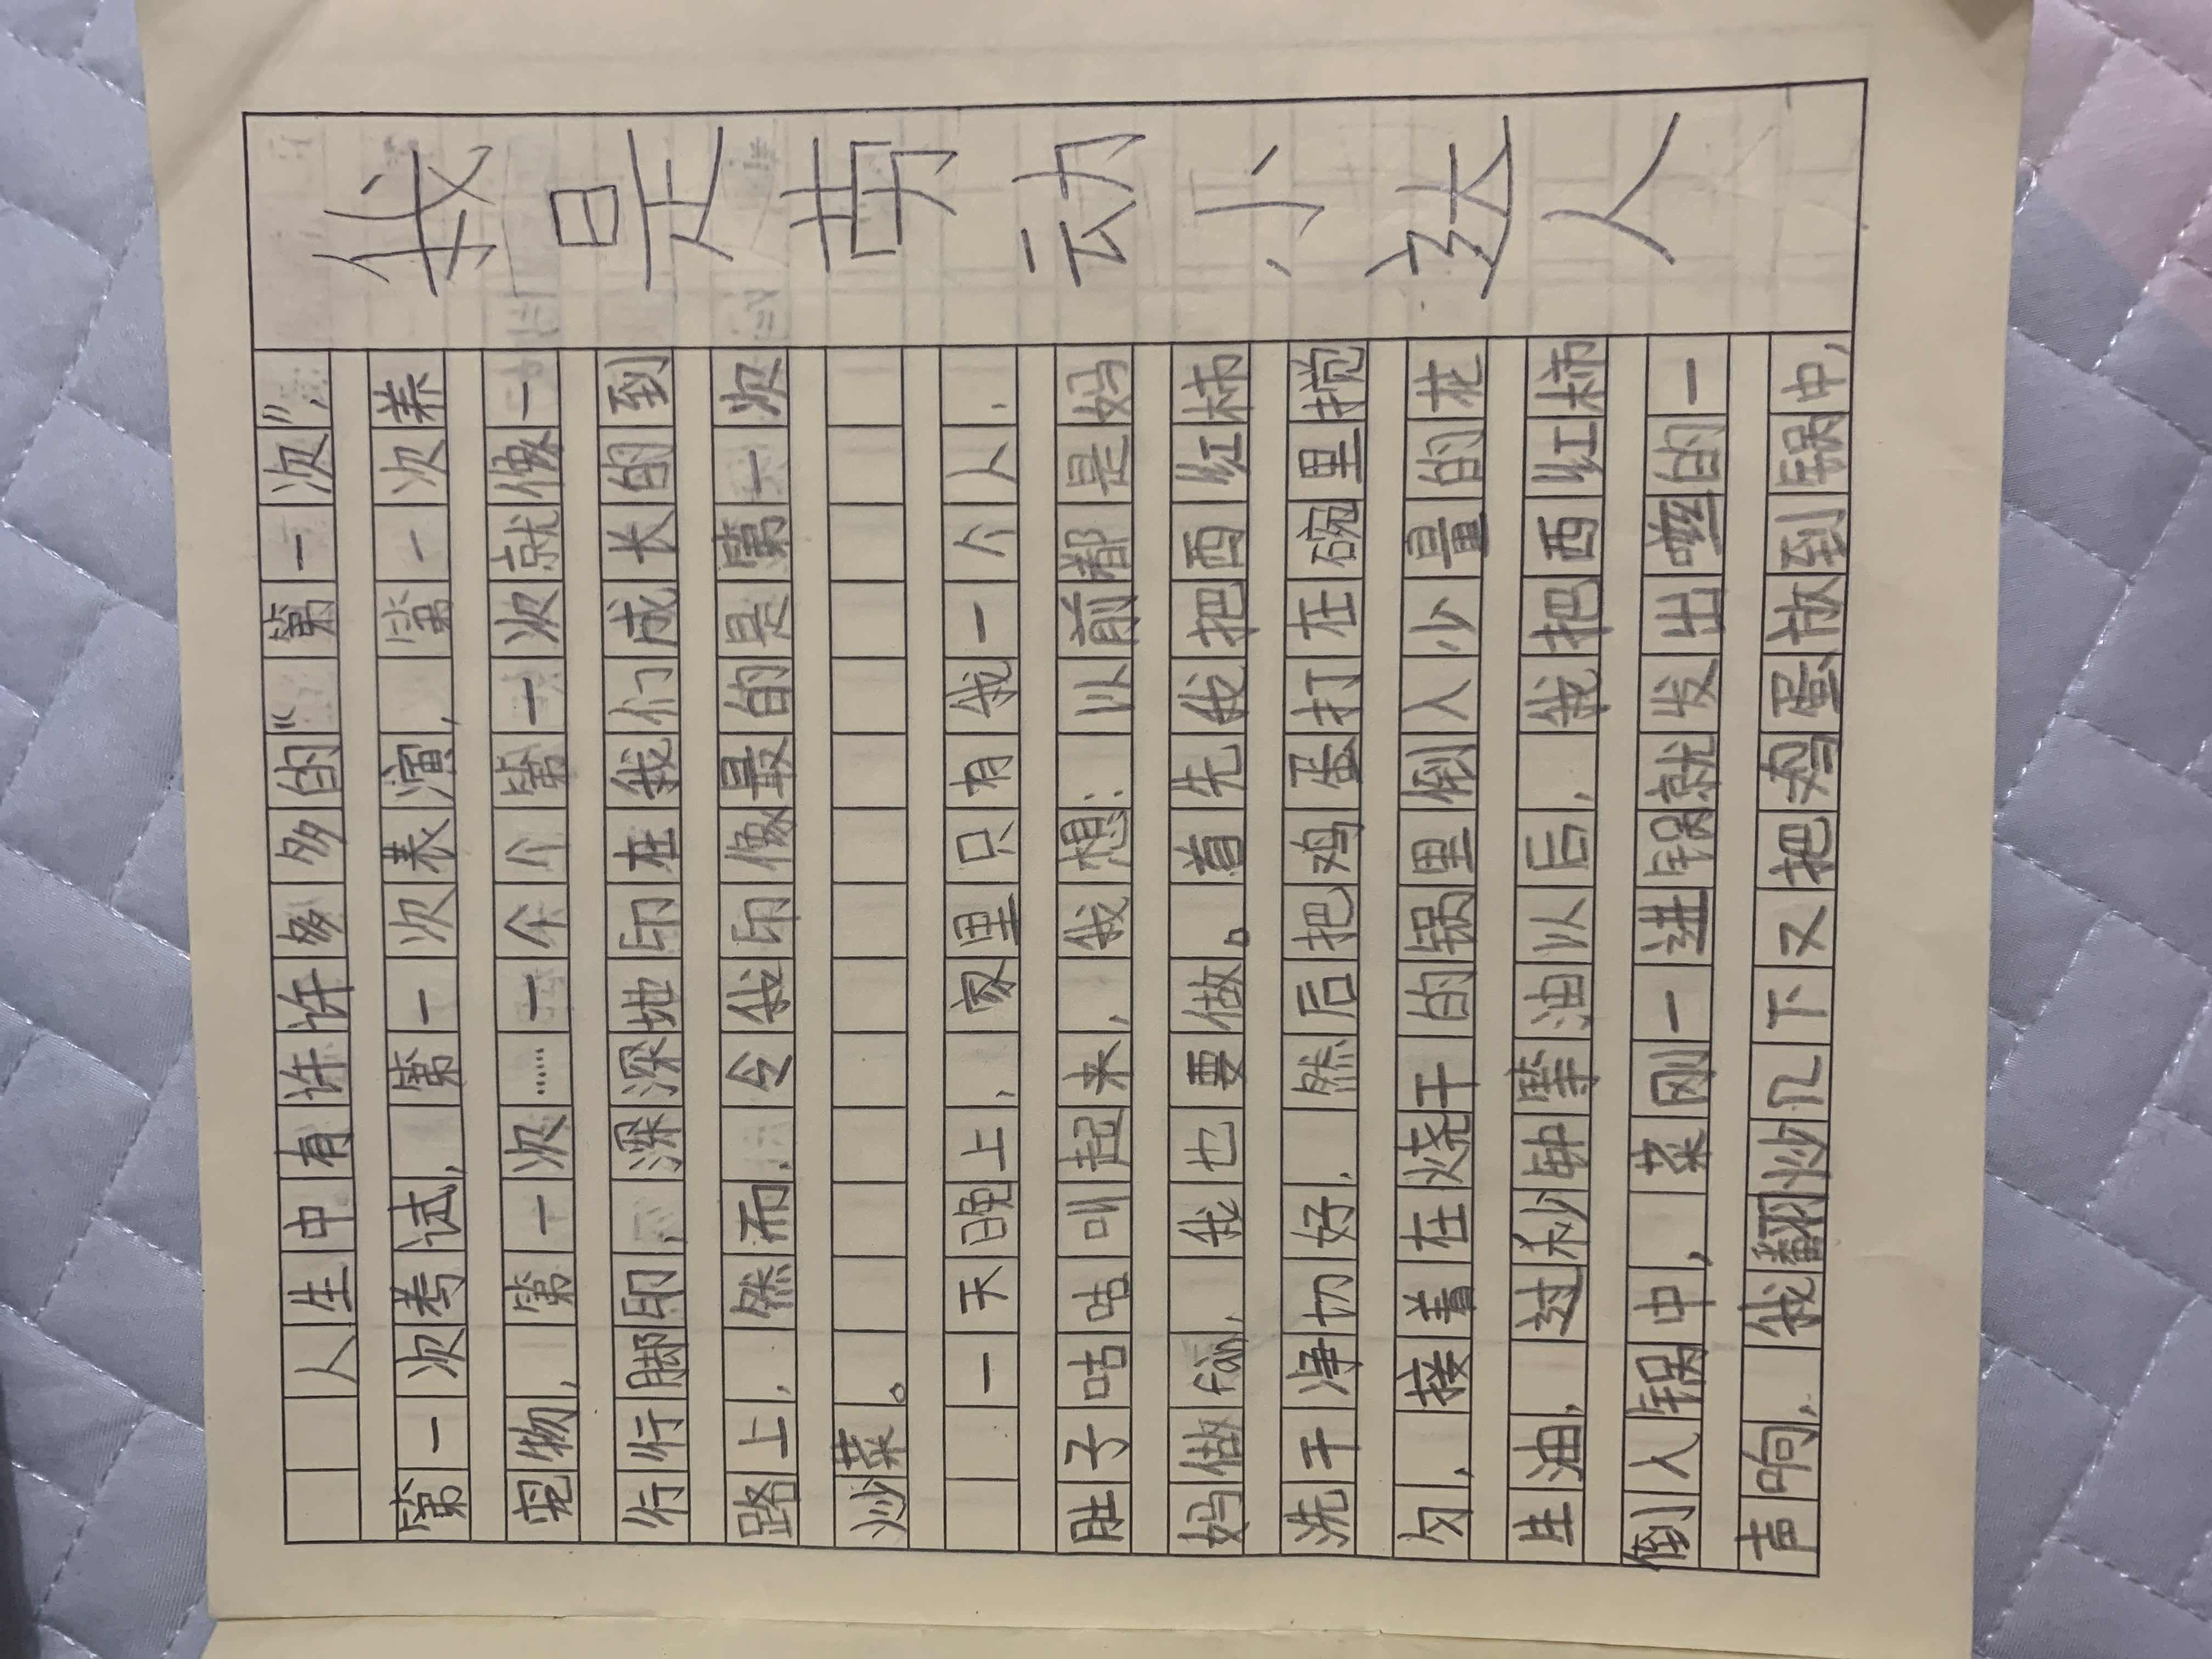 我是劳动小达人
人生中有许许多多的“第一次”，
第一次考试，第一次表演，第一次养
宠物，第一次……一个个第一次就像一
行行脚印，深深地印在我们成长的到
路上，然而，令我印像最的是第一次
炒菜。
一天晚上，家里只有我一个人，
肚子咕咕叫起来，我想：以前都是妈
妈做fàn，我也要做。首先我把西红柿
洗干净切好，然后把鸡蛋打在碗里搅
匀，接着在烧干的锅里倒入少量的花
生油，过秒钟等油以后，我把西红柿
倒入锅中，菜刚一进锅就发出嗞的一
声响，我翻炒几下又把鸡蛋放到锅中，